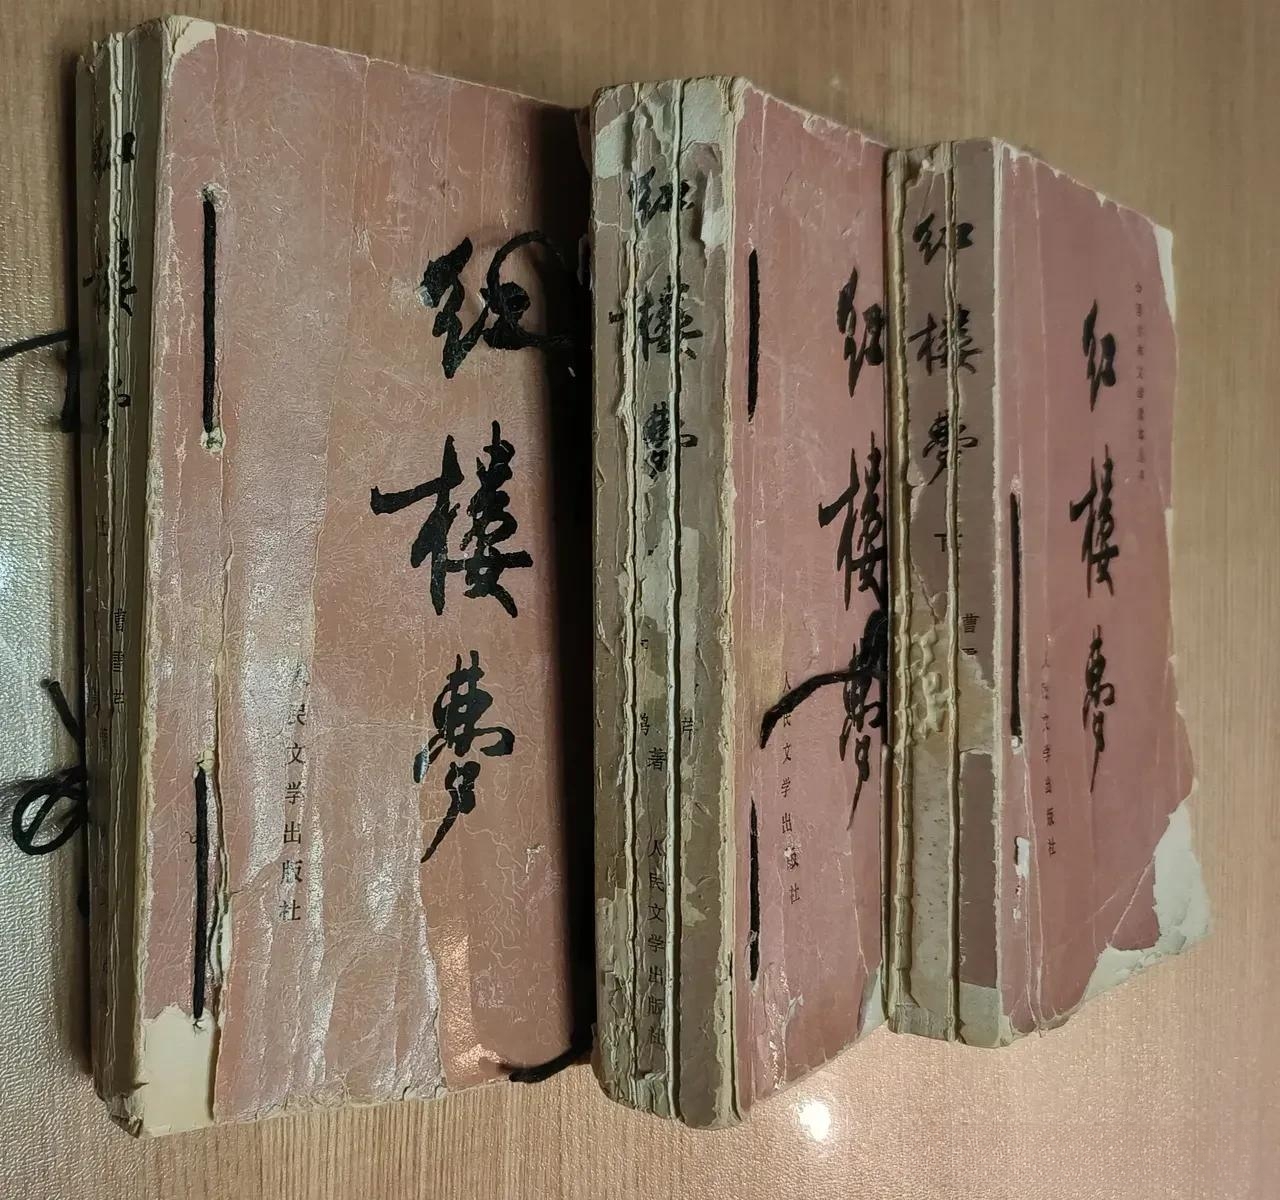 红楼梦
曹雪芹
红楼梦
民文学出版社
红楼梦
芹
著 人民文学出版社
红楼梦
人民文学出版社
红楼梦 下
曹
中国古典文学读本丛书
红楼梦
人民文学出版社